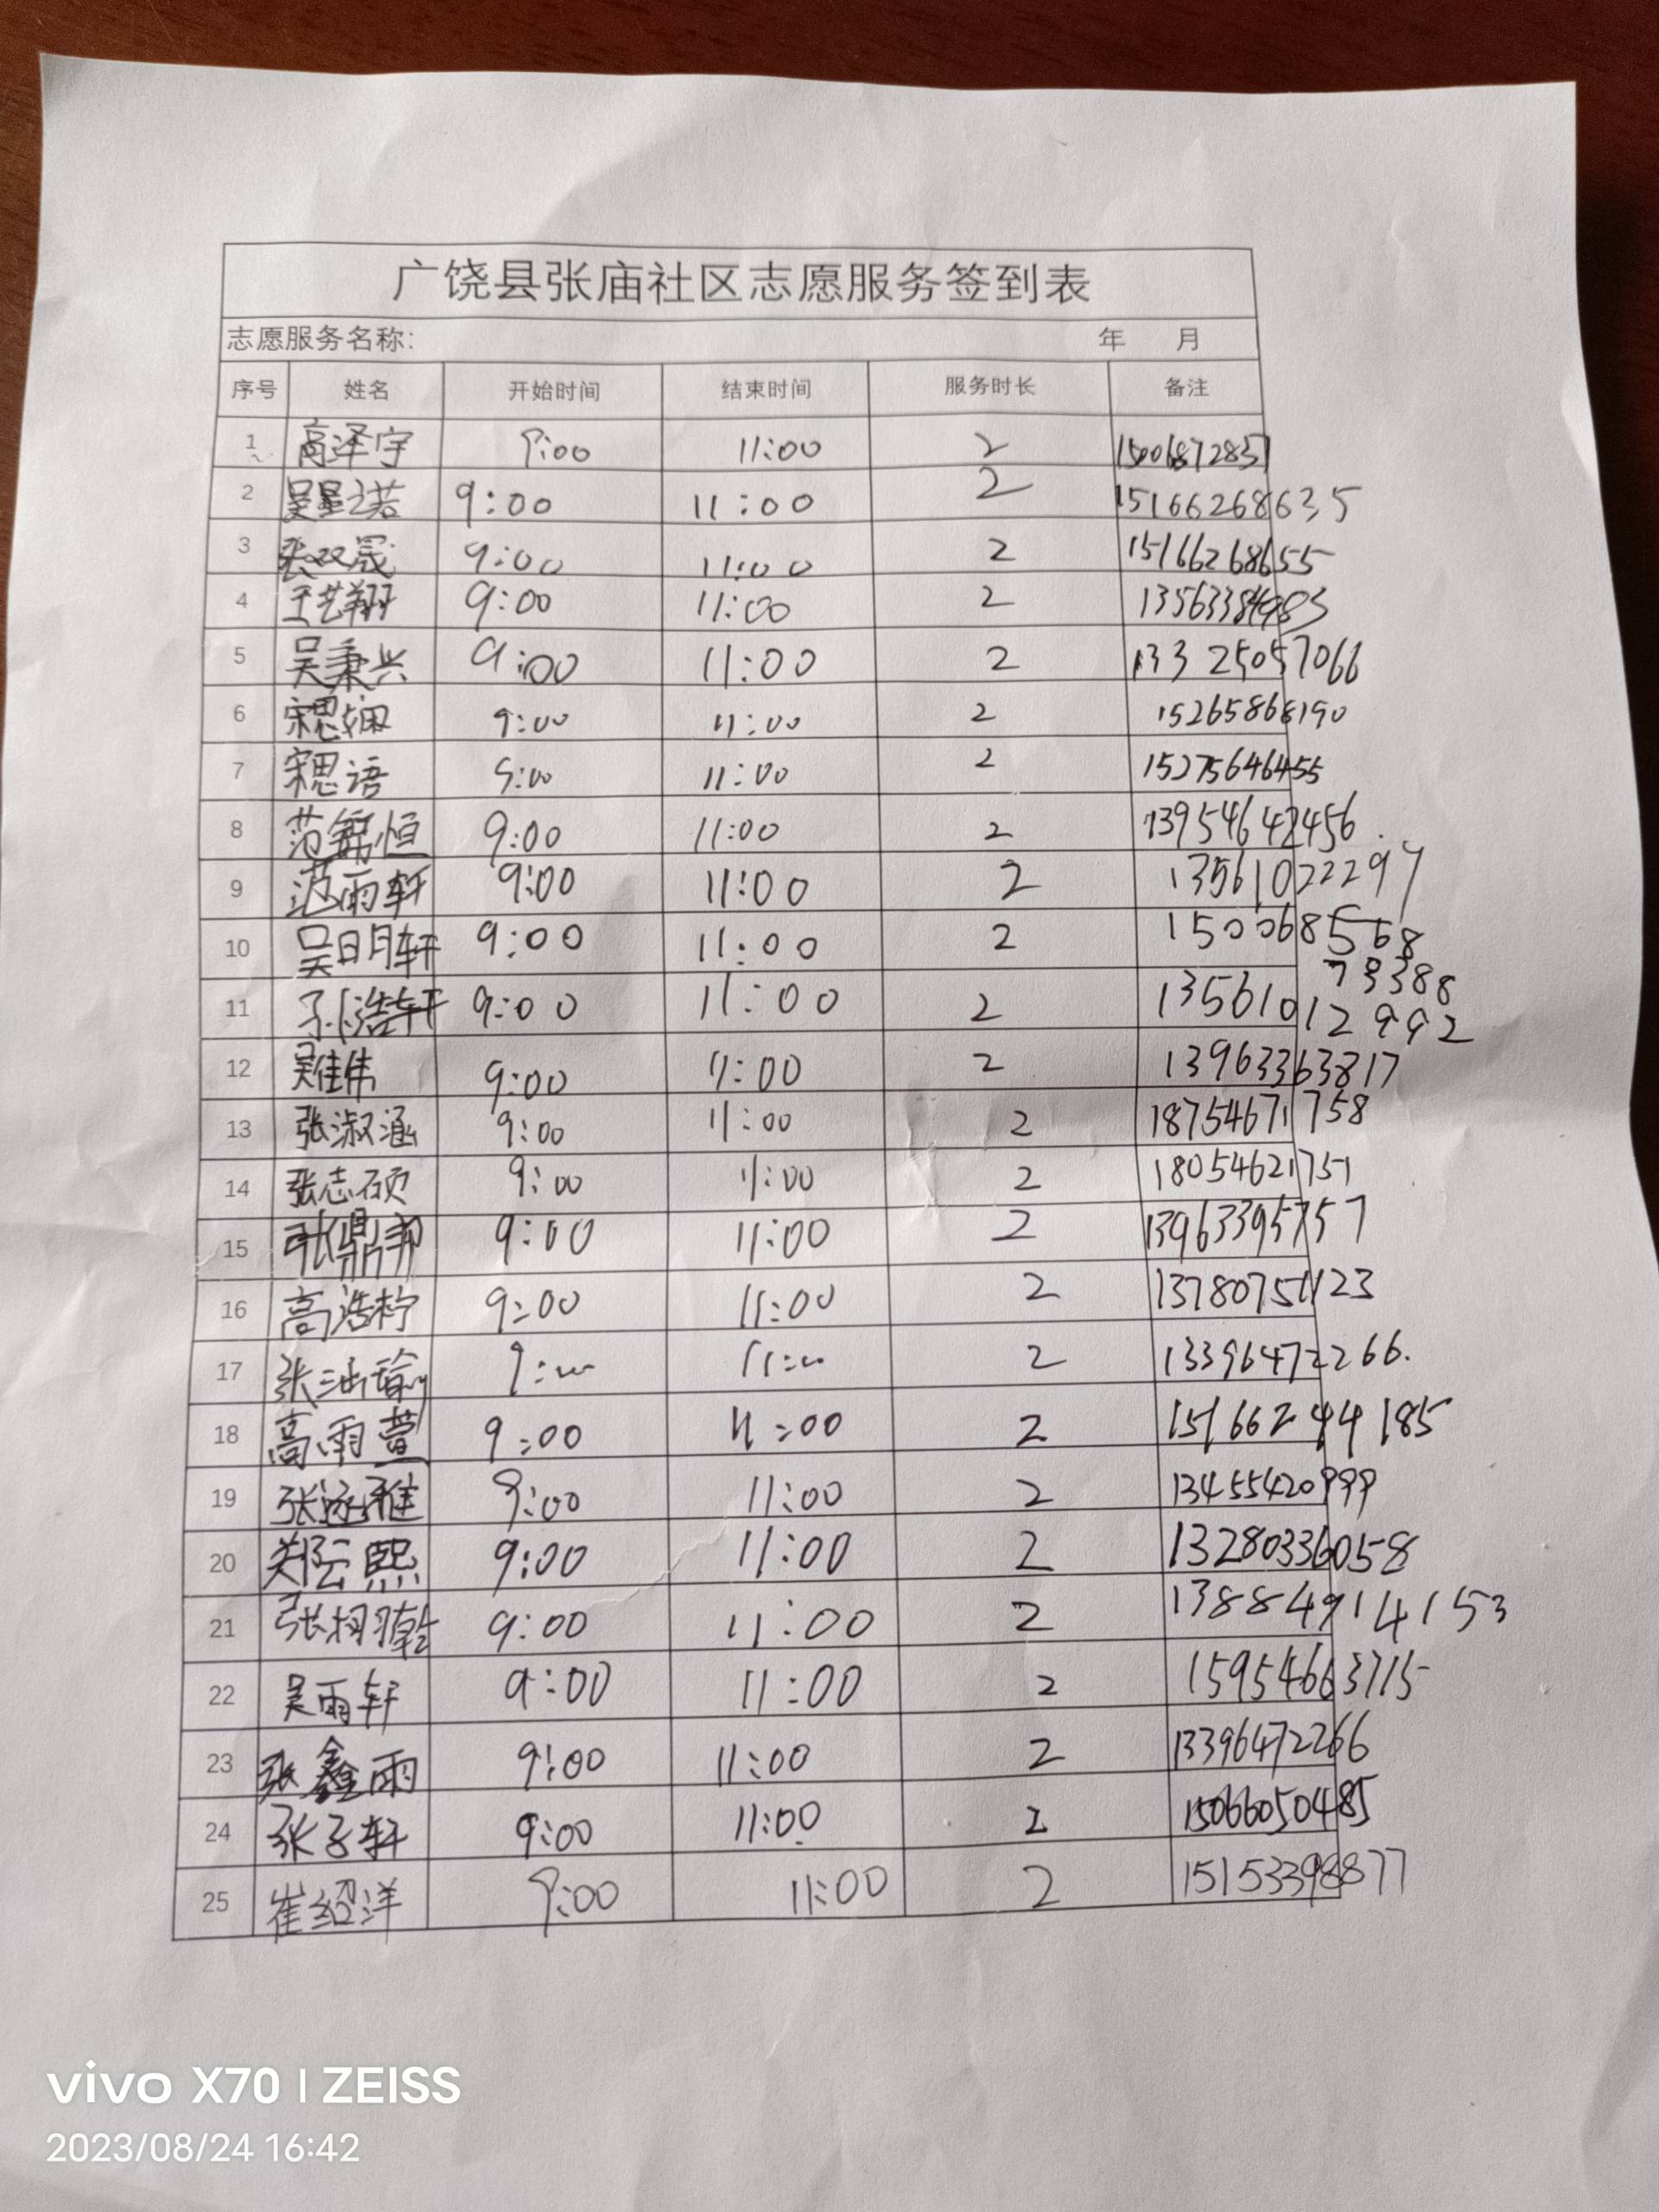 广饶县张庙社区志愿服务签到表
志愿服务名称: 年 月
序号 姓名 开始时间 结束时间 服务时长 备注
1 高泽宇 9:00 11:00 2
2 吴星诺 9:00 11:00 2 15166268635
3 张双晟 9:00 11:00 2 15166268655
4 王艺翔 9:00 11:00 2 13563384983
5 吴秉兴 9:00 11:00 2 13325057066
6 宋思娴 9:00 11:00 2 15265868190
7 宋思语 9:00 11:00 2 15275646455
8 范锦恒 9:00 11:00 2 13954642456.
9 范雨轩 9:00 11:00 2 13561022297
10 吴明轩 9:00 11:00 2 150068568
73388
11 孙浩轩 9:00 11:00 2 13561012992
12 吴佳伟 9:00 11:00 2 13963363817
13 张淑涵 9:00 11:00 2 18754671758
14 张志硕 9:00 11:00 2 18054621751
15 张鼎 9:00 11:00 2 13963395757
16 高浩柠 9:00 11:00 2 13780751123
17 张涵瑜 9:00 11:00 2 13396472266.
18 高雨萱 9:00 11:00 2 15166244185
19 张涵雅 9:00 11:00 2 13455420999
20 郑云熙 9:00 11:00 2 13280336058
21 张栩乾 9:00 11:00 2 13884914153
22 吴雨轩 9:00 11:00 2 15954663715
23 张鑫雨 9:00 11:00 2 13396472266
24 张子轩 9:00 11:00 2 15066050485
25 崔绍洋 9:00 11:00 2 15153398877
vivo X70 | ZEISS
2023/08/24 16:42